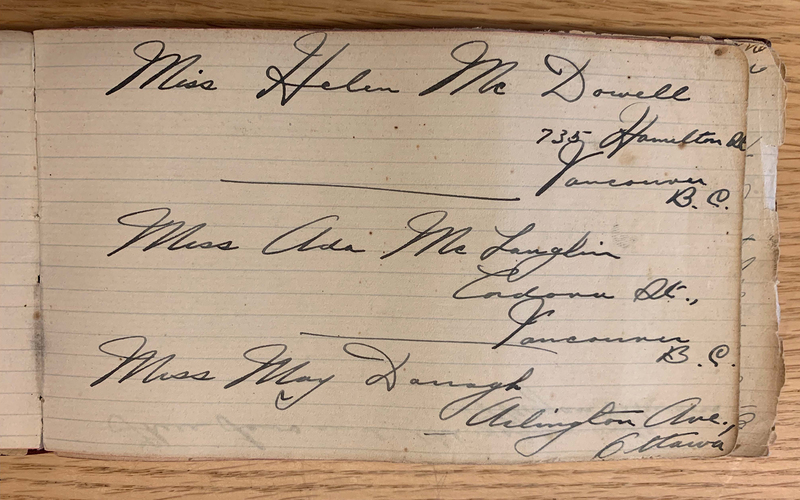 Miss Helen Mc Dowell
735 Hamilton St
Vancouver
B. C.
Miss Ada Mc Langlin
Cordova St.,
Vancouver
B. C.
Miss May Darragh
Arlington Ave.,
Ottawa